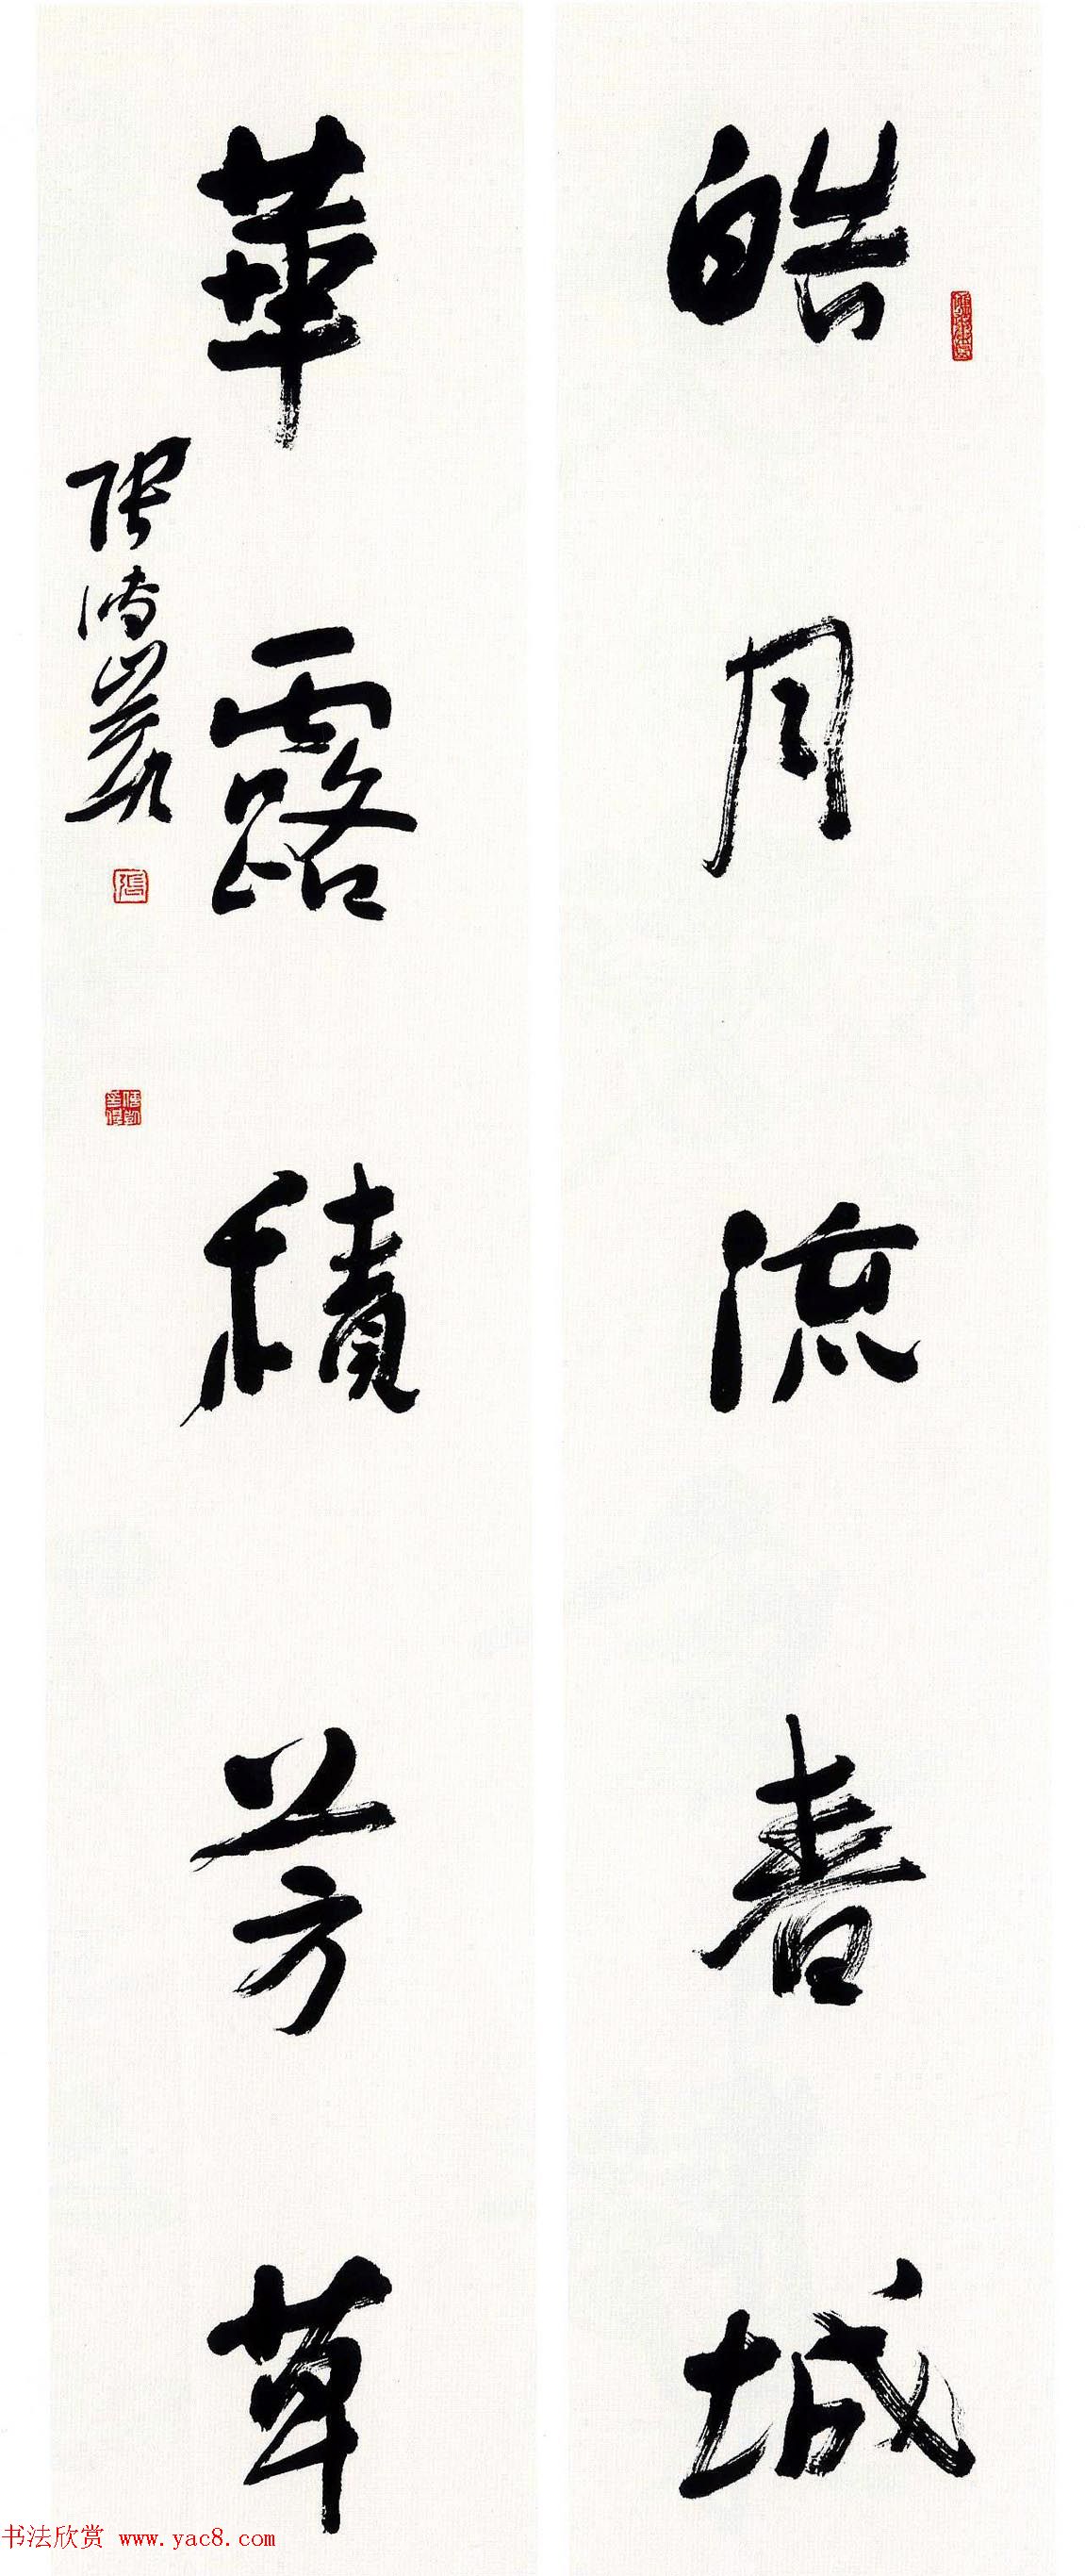 皓月流春城
華露積芳草
張傳凱
书法欣赏 www.yac8.com